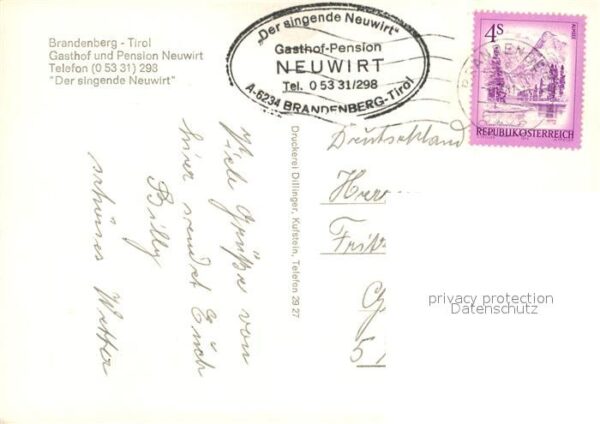 Brandenberg - Tirol
Gasthof und Pension Neuwirt
Telefon (0 53 31) 298
"Der singende Neuwirt"
„Der singende Neuwirt"
Gasthof-Pension
NEUWIRT
Tel. 0 53 31/298
A-6234 BRANDENBERG-Tirol
4S
REPUBLIK ÖSTERREICH
Viele Grüße von
hier sendet Euch
Billy
schönes Wetter
Druckerei Dillinger, Kufstein, Telefon 29 27
Deutschland
Herr
Fritz
G
5
privacy protection
Datenschutz